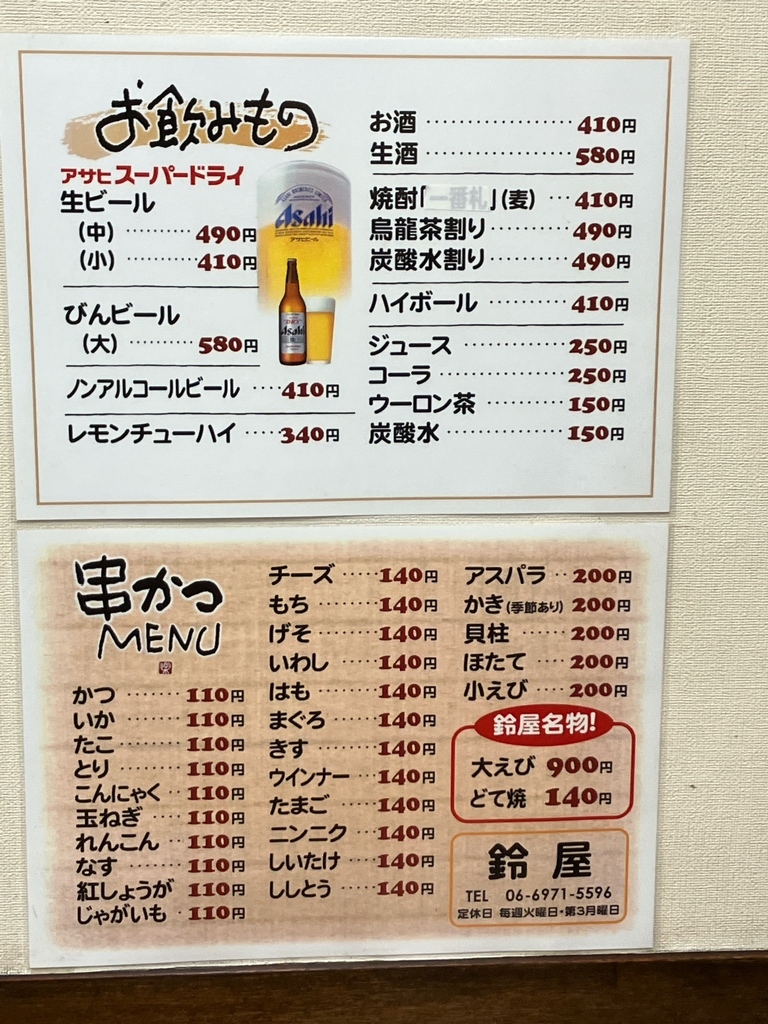 お飲みもの
アサヒスーパードライ
生ビール
(中) ·········· 490円
(小) ·········· 410円
びんビール
(大) ·········· 580円
ノンアルコールビール ···· 410円
レモンチューハイ ····· 340円
Asahi
アサヒビール
Asahi
お酒 ···················· 410円
生酒 ···················· 580円
焼酎「一番札」(麦) ··· 410円
烏龍茶割り ·········· 490円
炭酸水割り ·········· 490円
ハイボール ············ 410円
ジュース ··············· 250円
コーラ ·················· 250円
ウーロン茶 ············ 150円
炭酸水 ················· 150円
串かつ
MENU
かつ ······· 110円
いか ······· 110円
たこ ········ 110円
とり ········ 110円
こんにゃく ·· 110円
玉ねぎ ···· 110円
れんこん ·· 110円
なす ······ 110円
紅しょうが 110円
じゃがいも · 110円
チーズ ····· 140円
もち ······· 140円
げそ ······· 140円
いわし ····· 140円
はも ······· 140円
まぐろ ····· 140円
きす ······· 140円
ウインナー ··· 140円
たまご ····· 140円
ニンニク ··· 140円
しいたけ ··· 140円
ししとう ···· 140円
アスパラ ·· 200円
かき(季節あり) 200円
貝柱 ····· 200円
ほたて ···· 200円
小えび ···· 200円
鈴屋名物!
大えび 900円
どて焼 140円
鈴屋
TEL 06-6971-5596
定休日 毎週火曜日・第3月曜日